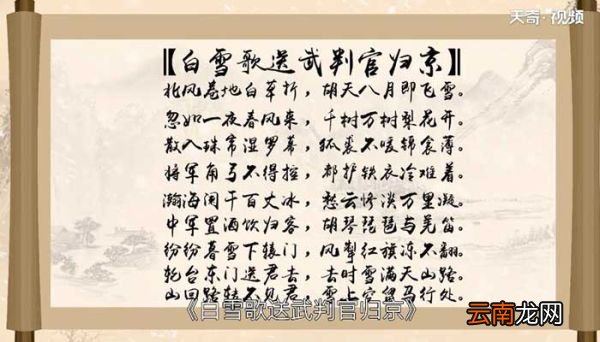 天奇·视频
【白雪歌送武判官归京】
北风卷地白草折，胡天八月即飞雪。
忽如一夜春风来，千树万树梨花开。
散入珠帘湿罗幕，狐裘不暖锦衾薄。
将军角弓不得控，都护铁衣冷难着。
瀚海阑干百丈冰，愁云惨淡万里凝。
中军置酒饮归客，胡琴琵琶与羌笛。
纷纷暮雪下辕门，风掣红旗冻不翻。
轮台东门送君去，去时雪满天山路。
山回路转不见君，雪上空留马行处。
《白雪歌送武判官归京》
云南龙网